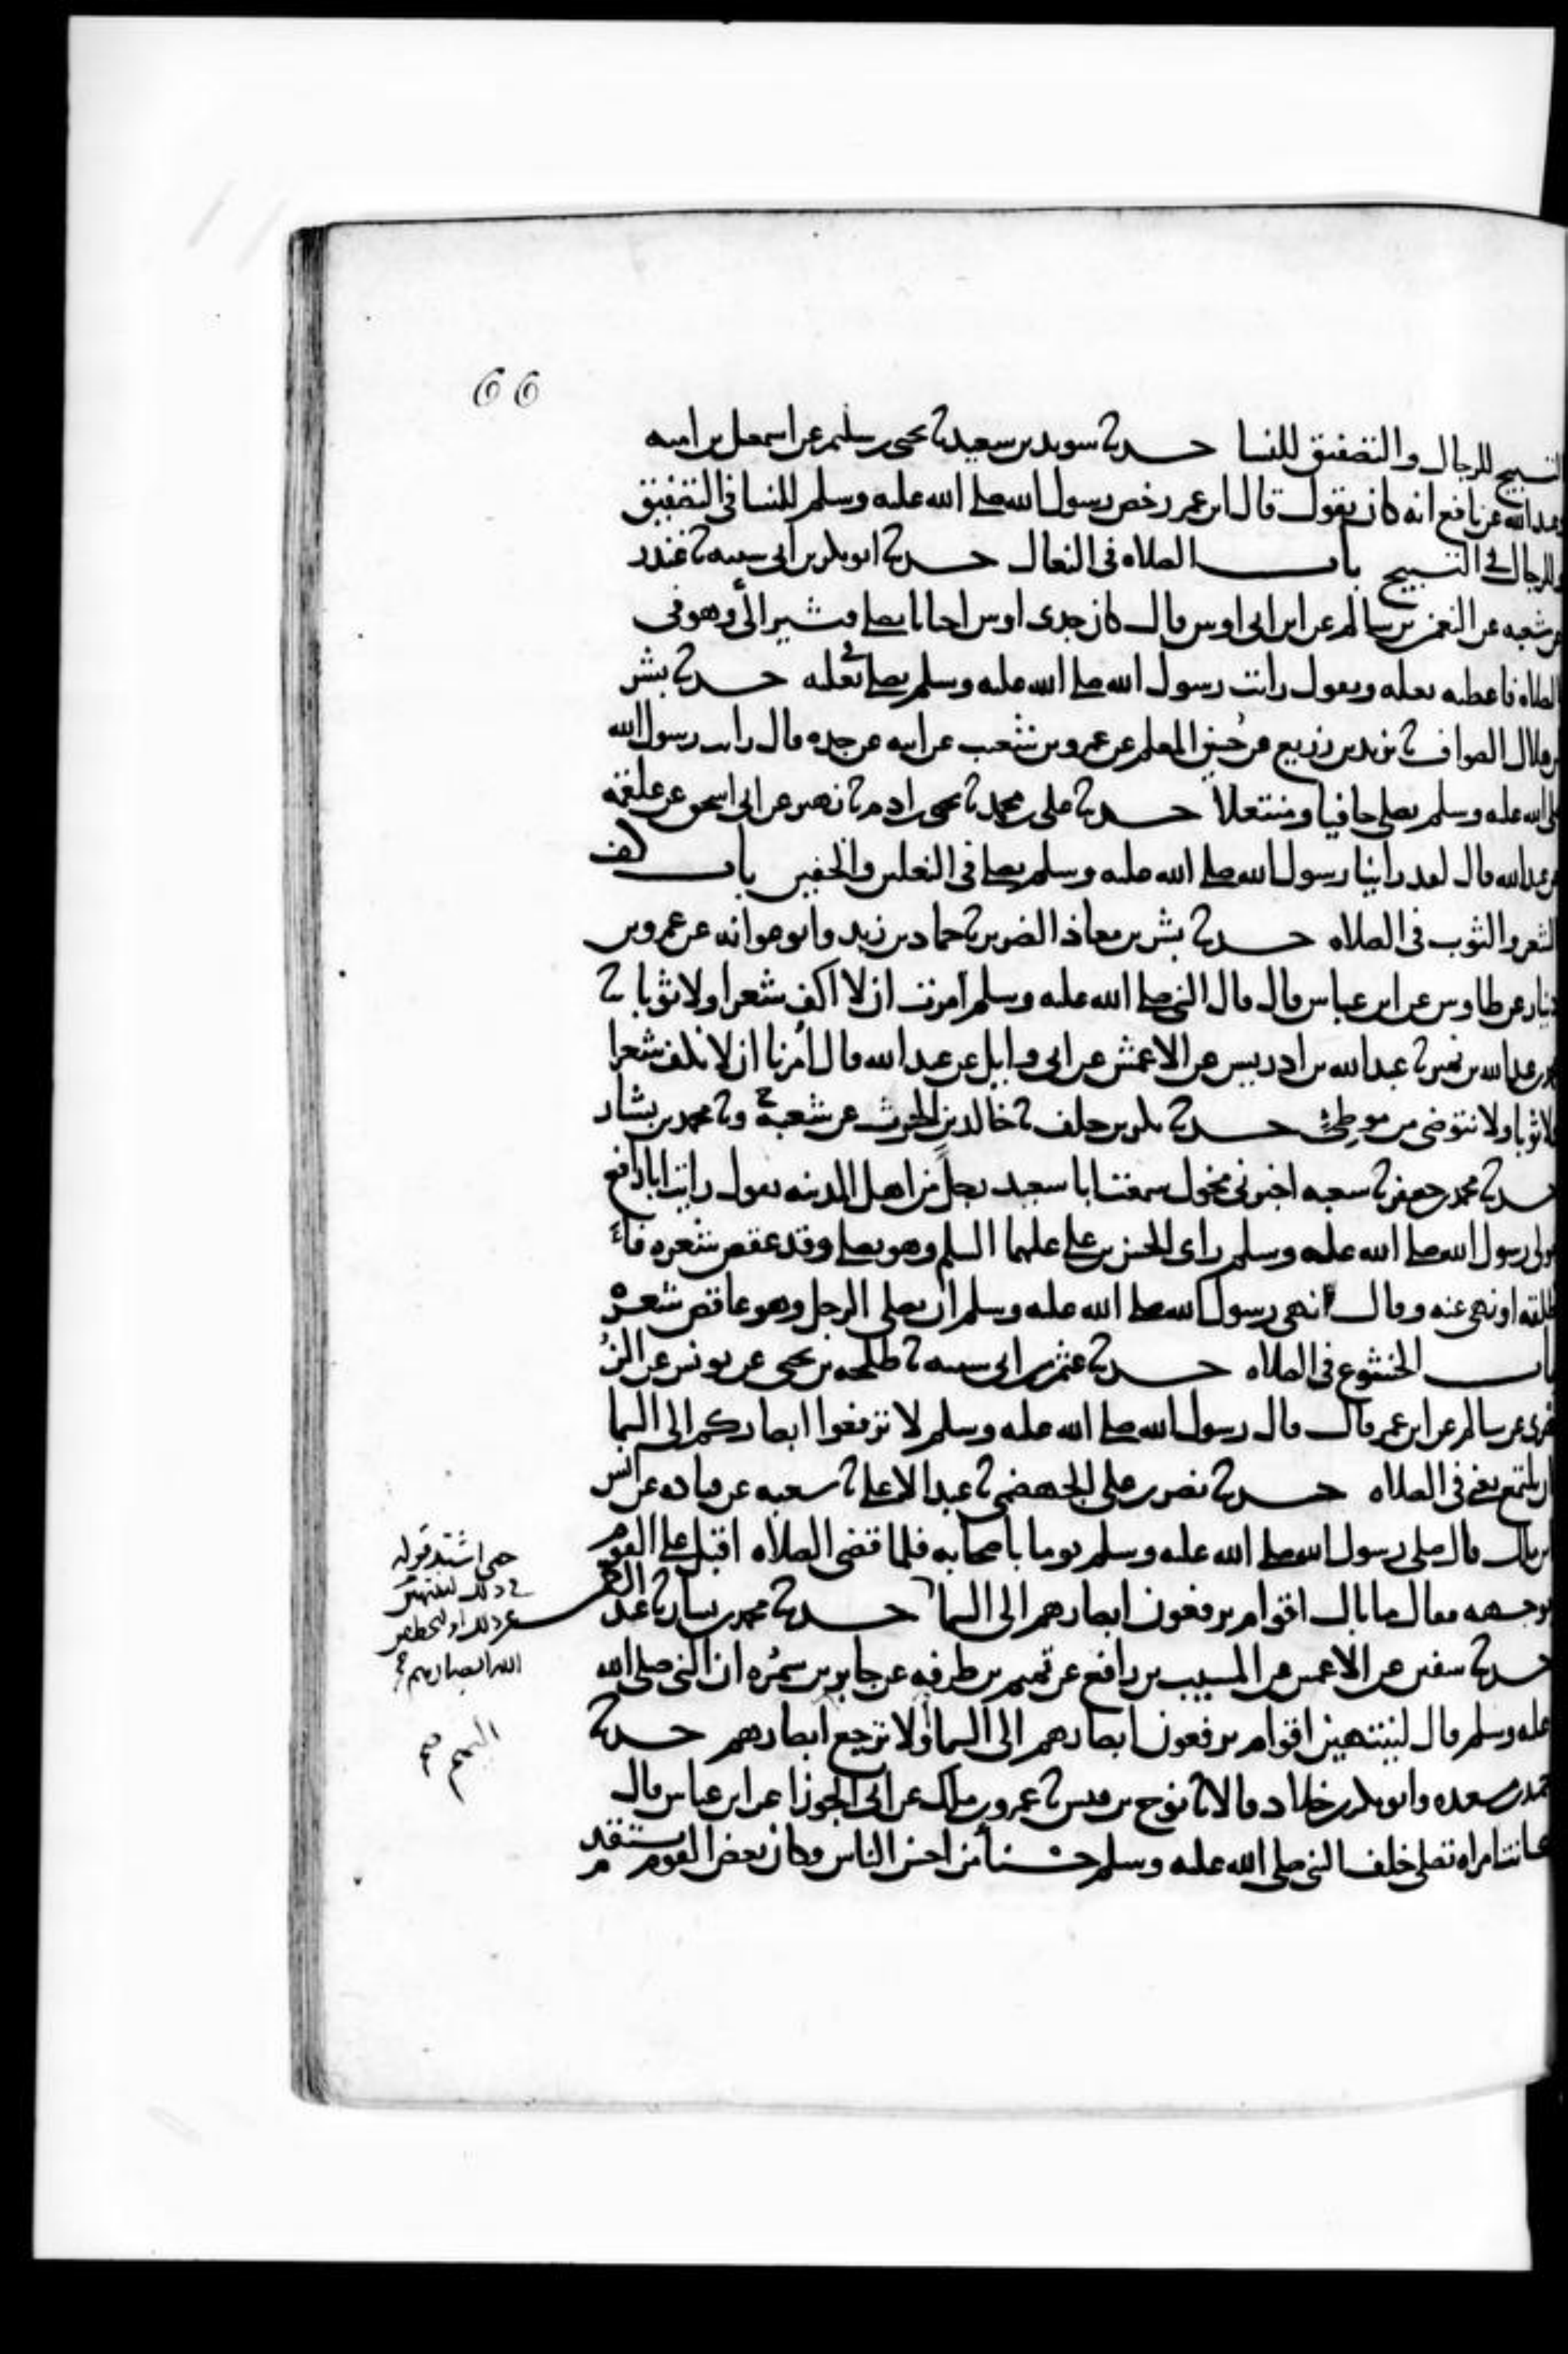 66
التسبيح للرجال والتصفيق للنسا حدثنا سويد بن سعيد ثنا يحيى بن سليم عن اسمعيل بن اميه
وعبيدالله عن نافع انه كان يقول قال ابن عمر رخص رسول الله صلى الله عليه وسلم للنسا في التصفيق
وللرجال في التسبيح باب الصلاه في النعال حدثنا ابو بكر بن ابي شيبه ثنا غندر
عن شعبه عن النعمن بن سالم عن ابن ابي اوس قال كان جدي اوس احيانا يصلي فيشير الي وهو في
الصلاه فاعطيه نعليه ويقول رايت رسول الله صلى الله عليه وسلم يصلي في نعليه حدثنا بشر
بن هلال الصواف ثنا يزيد بن زريع عن حسين المعلم عن عمرو بن شعيب عن ابيه عن جده قال رايت رسول الله
صلى الله عليه وسلم يصلي حافيا ومنتعلا حدثنا علي بن محمد ثنا يحيى بن ادم ثنا زهير عن ابي اسحق عن علقمه
عن عبدالله قال لقد راينا رسول الله صلى الله عليه وسلم يصلي في النعلين والخفين باب كف
الشعر والثوب في الصلاه حدثنا بشر بن معاذ الضرير ثنا حماد بن زيد وابو عوانه عن عمرو بن
دينار عن طاوس عن ابن عباس قال قال النبي صلى الله عليه وسلم امرت ان لا اكف شعرا ولا ثوبا ثنا
محمد بن عبدالله بن نمير ثنا عبدالله بن ادريس عن الاعمش عن ابي وايل عن عبدالله قال امرنا ان لا نكف شعرا
ولا ثوبا ولا نتوضى من موطئ حدثنا بكر بن خلف ثنا خالد بن الحرث عن شعبة ح وثنا محمد بن بشار
حدثنا محمد بن جعفر ثنا شعبه اخبرني مخول سمعت ابا سعيد رجل من اهل المدينه يقول رايت ابا رافع
مولى رسول الله صلى الله عليه وسلم راى الحسن بن علي عليهما السلم وهو يصلي وقد عقص شعره فا
طلقه او نهى عنه وقال نهى رسول الله صلى الله عليه وسلم ان يصلي الرجل وهو عاقص شعره
باب الخشوع في الصلاه حدثنا عثمن بن ابي شيبه ثنا طلحه بن يحيى عن يونس عن الز
هري عن سالم عن ابن عمر قال قال رسول الله صلى الله عليه وسلم لا ترفعوا ابصاركم الى السما
ان يلتمع يعني في الصلاه حدثنا نصر بن علي الجهضمي ثنا عبد الاعلى ثنا سعيد عن قتاده عن انس
بن ملك قال صلى رسول الله صلى الله عليه وسلم يوما باصحابه فلما قضى الصلاه اقبل على القوم
بوجهه فقال ما بال اقوام يرفعون ابصارهم الى السما حدثنا محمد بن بشار ثنا عبد الرحمن
حتى اشتد قوله
في ذلك لينتهين
عن ذلك او ليخطفن
الله ابصارهم
حدثنا سفين عن الاعمش عن المسيب بن رافع عن تميم بن طرفه عن جابر بن سمره ان النبي صلى الله
عليه وسلم قال لينتهين اقوام يرفعون ابصارهم الى السما او لا ترجع ابصارهم حدثنا
حميد بن مسعده وابو بكر بن خلاد قالا ثنا نوح بن قيس ثنا عمرو بن ملك عن ابي الجوزا عن ابن عباس قال
كانت امراه تصلي خلف النبي صلى الله عليه وسلم حسنا من احسن الناس وكان بعض القوم يستقدم